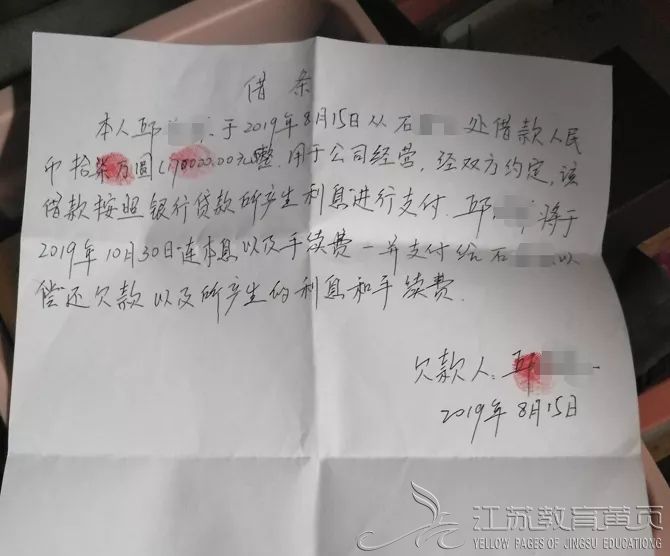 借条
本人邳 于2019年8月15日从石 处借款人民
币拾柒万圆(170000.00元整,用于公司经营,经双方约定,该
借款按照银行贷款所产生利息进行支付. 邳 将于
2019年10月30日连本息以及手续费一并支付给石 以
偿还欠款以及所产生的利息和手续费.
欠款人:
2019年8月15日
江苏教育黄页
YELLOW PAGES OF JINGSU EDUCATIONG